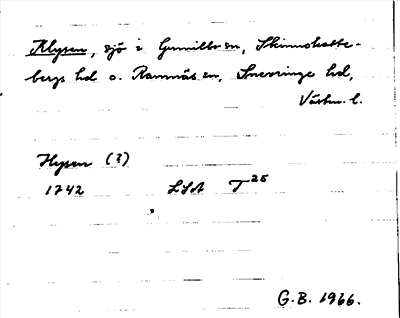 Klysen, sjö i Gunilbo sn, Skinnskatte-
bergs hd o. Ramnäs sn, Snevringe hd,
Västm. l.
Hysen (?)
1742 LSA T 25
G.B. 1966.